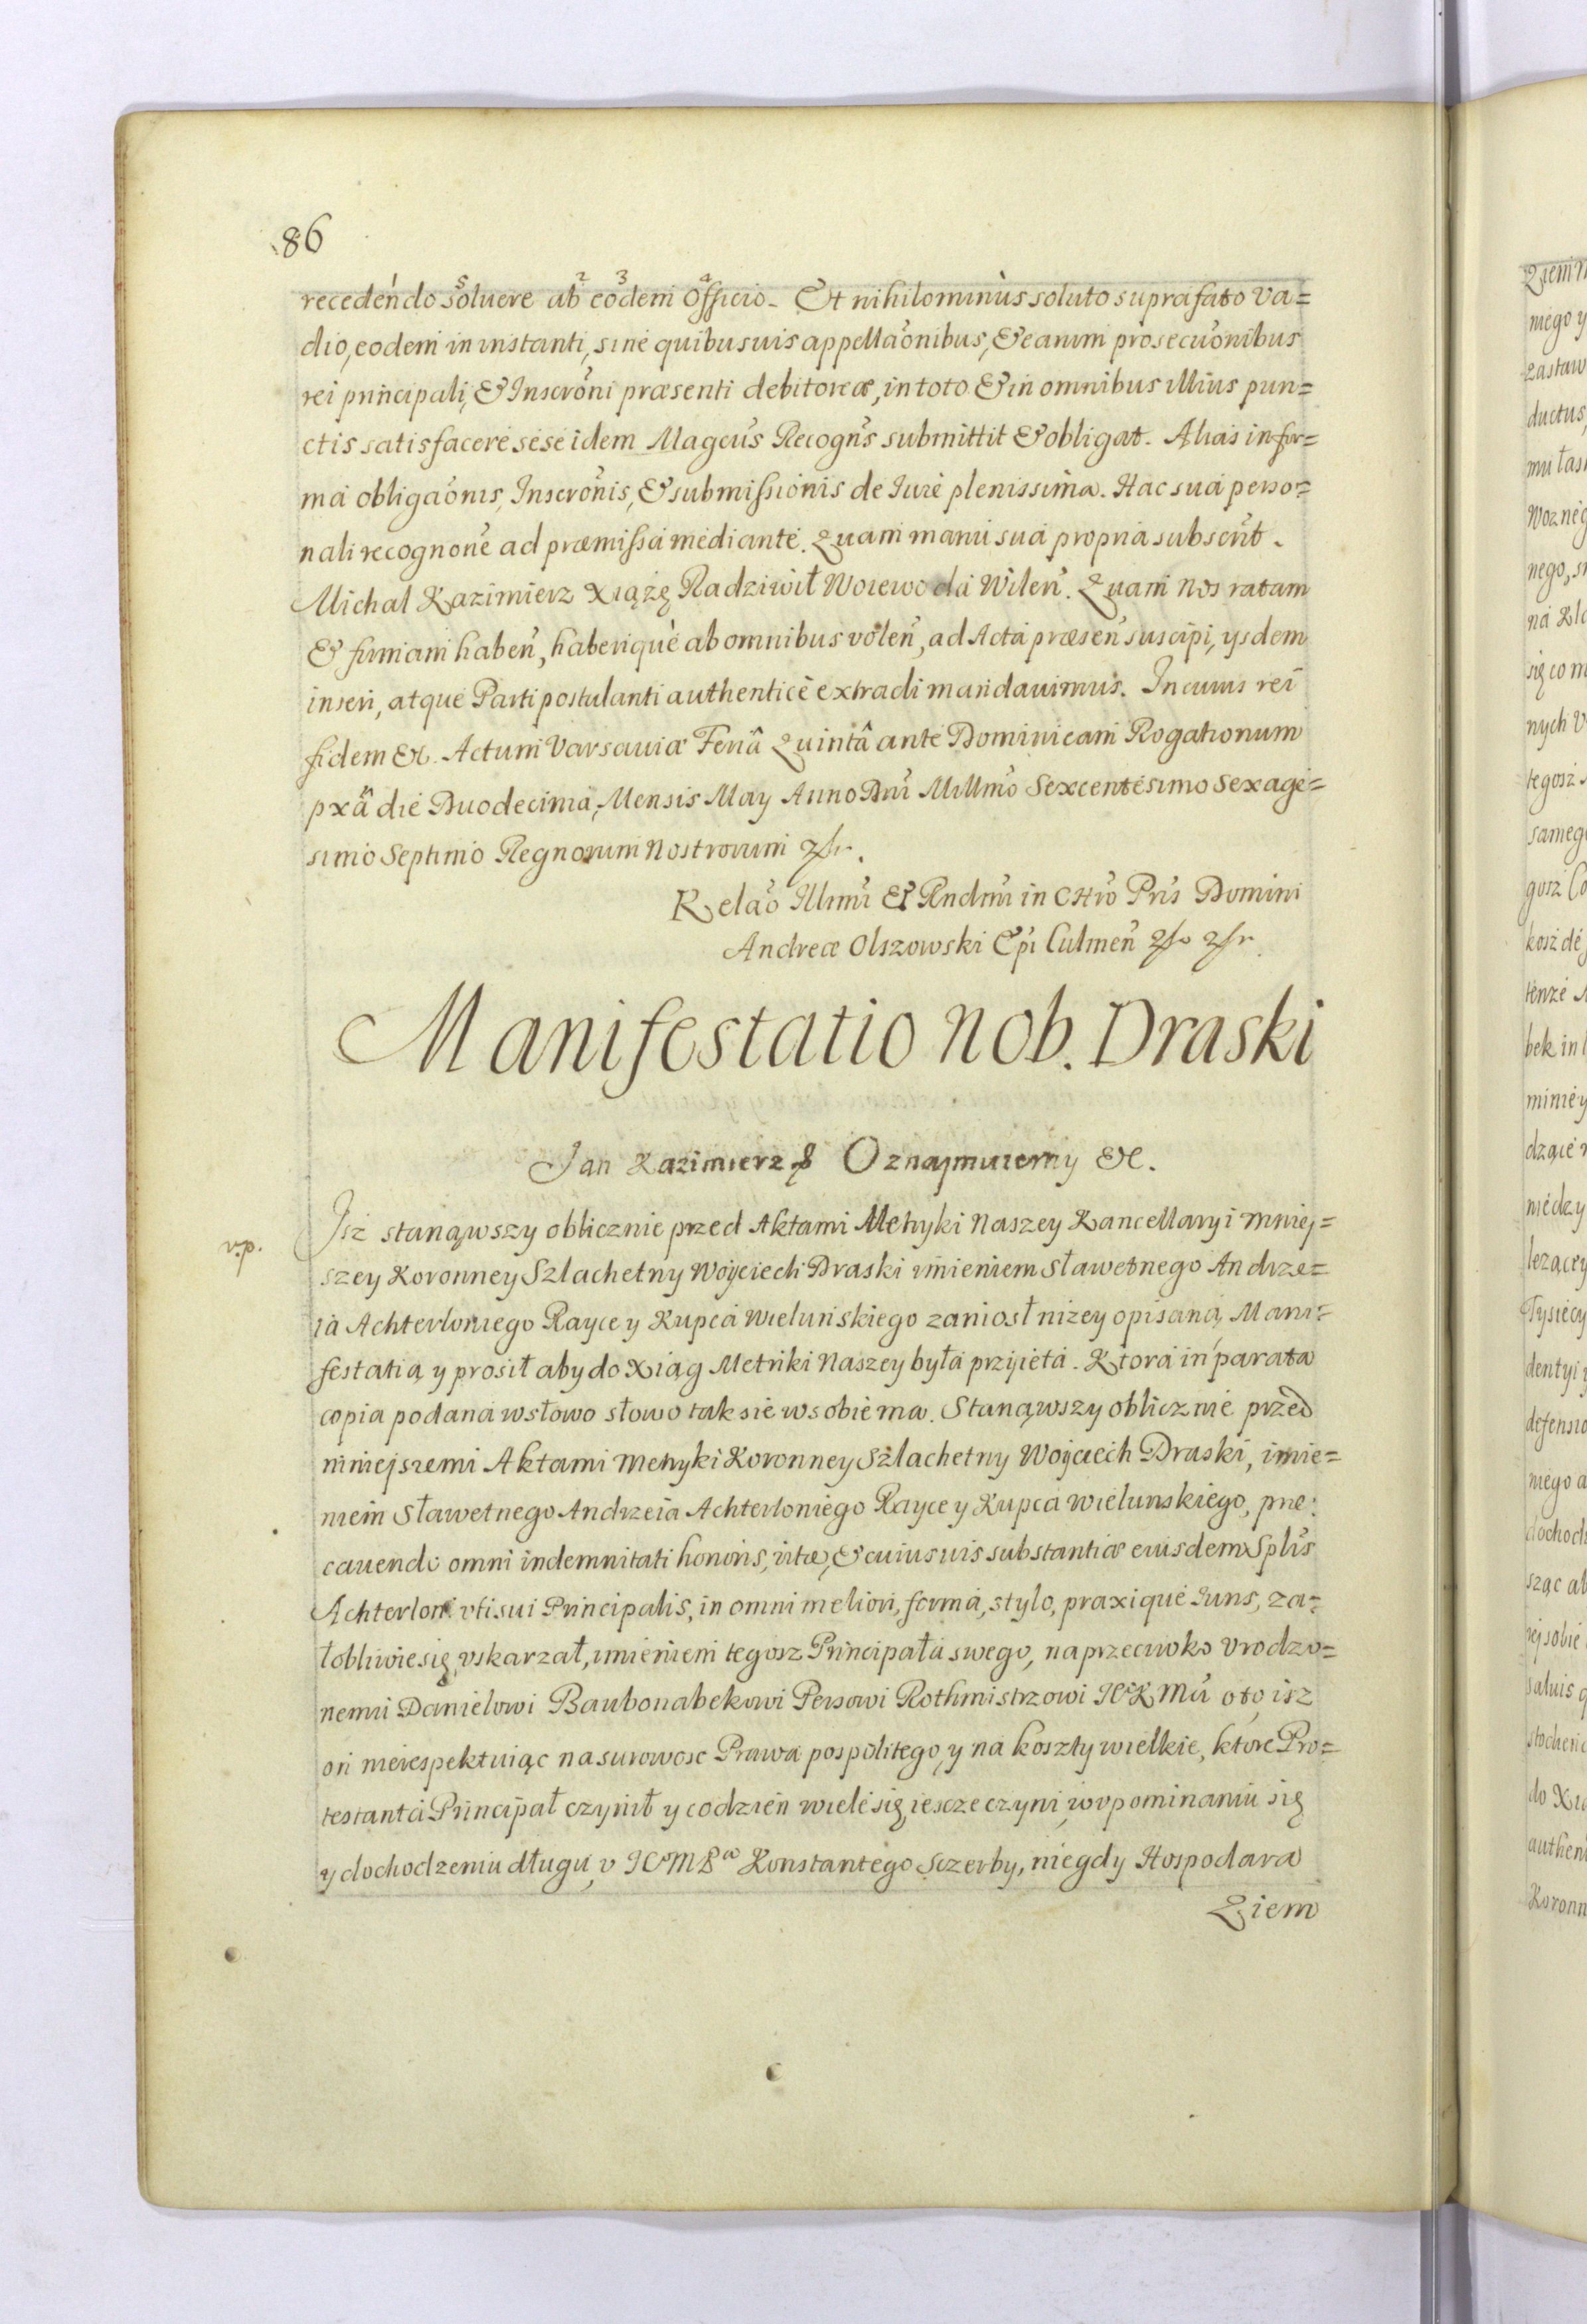 86
recedendo soluere ab eodem Officio. Et nihilominus soluto suprafato Va=
dio, eodem in instanti, sine quibusuis appellaonibus, & earum prosecuonibus
rei principali, & Inscroni præsenti debitoreæ, in toto & in omnibus illius pun=
ctis satisfacere sese idem Magcus Recogns submittit & obligat. Alias in for=
ma obligaonis, Inscronis, & submissionis de Iure plenissima. Hac sua perso=
nali recognone ad præmissa mediante. Quam manu sua propria subscrit.
Michal Kazimierz Xiążę Radziwił Woiewoda Wilen. Quam Nos ratam
& firmam haben, haberique ab omnibus volen, ad Acta præsen suscipi, ysdem
inseri, atque Parti postulanti authentice extradi mandauimus. In cuius rei
fidem &c. Actum Varsauiæ Feria Quinta ante Dominicam Rogationum
pxa die Duodecima, Mensis May Anno Dni Millmo Sexcentesimo Sexage=
simo Septimo Regnorum Nostrorum
Relao Illmi & Rndmi in Chro Pris Domini
Andreæ Olszowski Epi Culmen
Manifestatio Nob. Draski
Jan Kazimierz Oznajmuiemy &c.
v.p.
Jsz stanąwszy oblicznie przed Aktami Metryki Naszey Kancellaryi Mniej=
szey Koronney Szlachetny Woyciech Draski imieniem Sławetnego Andrze=
ia Achterloniego Rayce y Kupca Wieluńskiego zaniosł niżey opisaną Mani=
festatią y prosił aby do Xiąg Metriki Naszey była prziięta. Ktora in parata
copia podana wsłowo słowo tak sie wsobie ma. Stanąwszy oblicznie przed
niniejszemi Aktami Metryki Koronney Szlachetny Woyciech Draski, imie=
niem Sławetnego Andrzeia Achterloniego Rayce y Kupca Wielunskiego, præ:
cauendo omni indemnitati honoris, vitæ, & cuiusuis substantiæ eiusdem Splis
Achterloni vti sui Principalis, in omni meliori, forma, stylo, praxique Iuris, za=
łobliwie się vskarzał, imieniem tegosz Principała swego, naprzeciwko Vrodzo=
nemu Danielowi Baubonabekowi Persowi Rothmistrzowi JCKMci oto isz
on nierespektuiąc na surowosc Prawa pospolitego, y na koszty wielkie, ktore Pro=
testanta Principał czynił y codzień wiele się iescze czyni, wvpominaniu się
y dochodzeniu długu, v JCMPa Konstantego Sczerby, niegdy Hospodara
Ziem